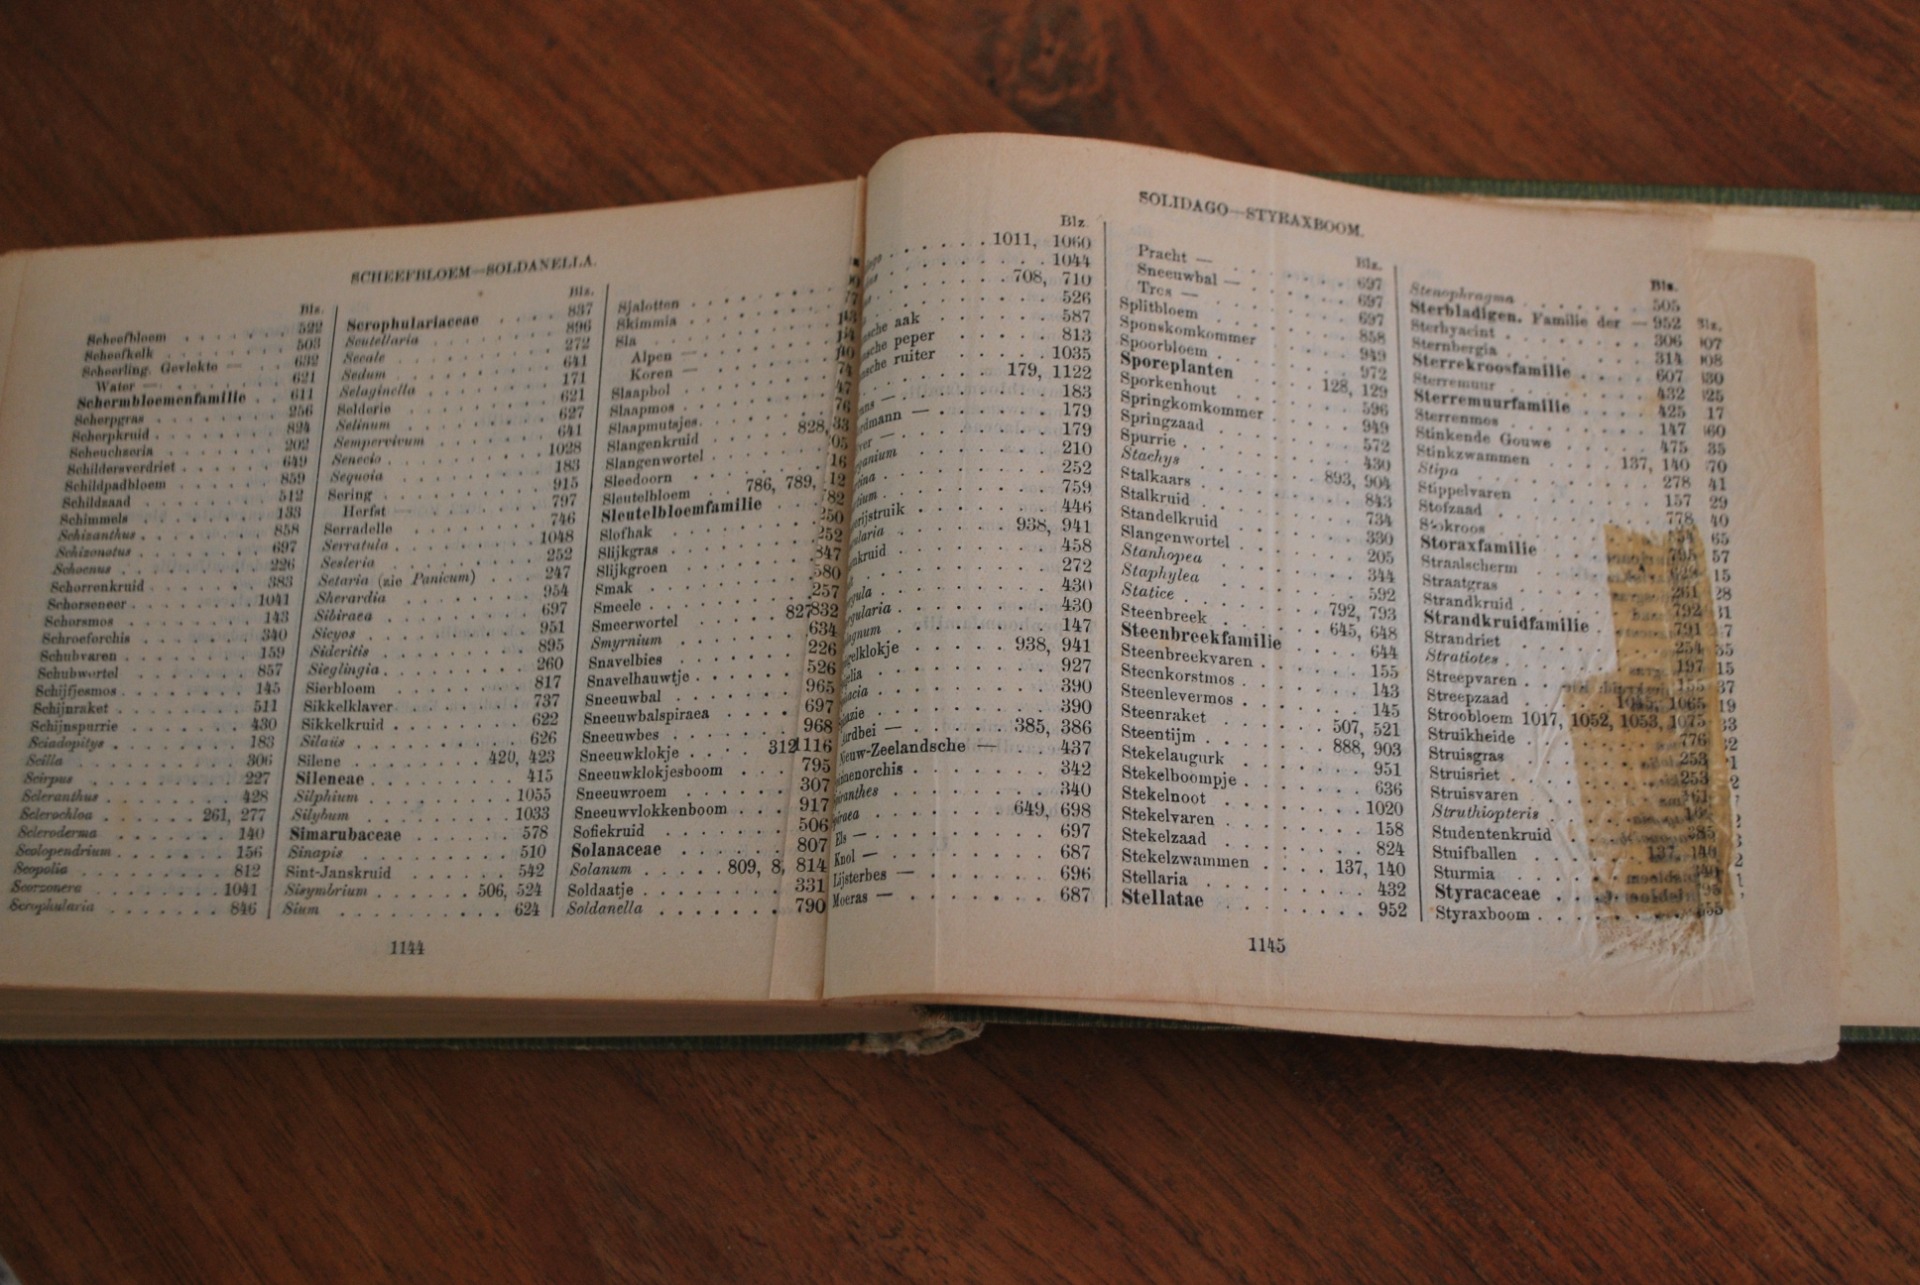 SCHEEFBLOEM—SOLDANELLA.
Blz.
Scheefbloem 522
Scheefkelk 503
Scheerling. Gevlekte — 632
Water — 621
Schermbloemenfamilie 611
Scherpgras 256
Scherpkruid 824
Scheuchzeria 202
Schildersverdriet 649
Schildpadbloem 859
Schildzaad 512
Schimmels 133
Schizanthus 858
Schizonotus 697
Schoenus 226
Schorrenkruid 383
Schorseneer 1041
Schorsmos 143
Schroeforchis 340
Schubvaren 159
Schubwortel 857
Schijfjesmos 145
Schijnraket 511
Schijnspurrie 430
Sciadopitys 183
Scilla 306
Scirpus 227
Scleranthus 428
Sclerochloa 261, 277
Scleroderma 140
Scolopendrium 156
Scopolia 812
Scorzonera 1041
Scrophularia 846
Blz.
Scrophulariaceae 837
Scutellaria 896
Secale 272
Sedum 641
Selaginella 171
Selderie 621
Selinum 627
Sempervivum 641
Senecio 1028
Sequoia 183
Sering 915
Herfst — 797
Serradelle 746
Serratula 1048
Sesleria 252
Setaria (zie Panicum) 247
Sherardia 954
Sibiraea 697
Sicyos 951
Sideritis 895
Sieglingia 260
Sierbloem 817
Sikkelklaver 737
Sikkelkruid 622
Silaüs 626
Silene 420, 423
Sileneae 415
Silphium 1055
Silybum 1033
Simarubaceae 578
Sinapis 510
Sint-Janskruid 542
Sisymbrium 506, 524
Sium 624
Sjalotten
Skimmia
Sla
Alpen —
Koren —
Slaapbol
Slaapmos
Slaapmutsjes 828,
Slangenkruid
Slangenwortel
Sleedoorn
Sleutelbloem 786, 789,
Sleutelbloemfamilie
Slofhak
Slijkgras
Slijkgroen
Smak
Smeele
Smeerwortel
Smyrnium 634
Snavelbies 226
Snavelhauwtje 526
Sneeuwbal 965
Sneeuwbalspiraea 697
Sneeuwbes 968
Sneeuwklokje
Sneeuwklokjesboom 795
Sneeuwroem 307
Sneeuwvlokkenboom 917
Sofiekruid 506
Solanaceae 807
Solanum 809, 8, 814
Soldaatje 331
Soldanella 790
1144
SOLIDAGO—STYRAXBOOM.
Blz.
1011, 1060
1044
708, 710
526
aak 587
peper 813
ruiter 1035
179, 1122
183
179
179
210
252
759
446
938, 941
458
272
430
430
147
938, 941
927
390
390
385, 386
Nieuw-Zeelandsche — 437
342
340
649, 698
Els — 697
Knol — 687
Lijsterbes — 696
Moeras — 687
Blz.
Pracht — 697
Sneeuwbal — 697
Tros — 697
Splitbloem 858
Sponskomkommer 949
Spoorbloem 972
Sporeplanten 128, 129
Sporkenhout 596
Springkomkommer 949
Springzaad 572
Spurrie 430
Stachys 893, 904
Stalkaars 843
Stalkruid 734
Standelkruid 330
Slangenwortel 205
Stanhopea 344
Staphylea 592
Statice 792, 793
Steenbreek 645, 648
Steenbreekfamilie 644
Steenbreekvaren 155
Steenkorstmos 143
Steenlevermos 145
Steenraket 507, 521
Steentijm 888, 903
Stekelaugurk 951
Stekelboompje 636
Stekelnoot 1020
Stekelvaren 158
Stekelzaad 824
Stekelzwammen 137, 140
Stellaria 432
Stellatae 952
Blz.
Stenophragma 505
Sterbladigen. Familie der — 952
Sterhyacint 306
Sternbergia 314
Sterrekroosfamilie 607
Sterremuur 432
Sterremuurfamilie 425
Sterrenmos 147
Stinkende Gouwe 475
Stinkzwammen 137, 140
Stipa 278
Stippelvaren 157
Stofzaad 778
Stokroos
Storaxfamilie 795
Straalscherm
Straatgras 261
Strandkruid 792
Strandkruidfamilie 791
Strandriet 254
Stratiotes 197
Streepvaren 155
Streepzaad 1045, 1065
Stroobloem 1017, 1052, 1053, 1075
Struikheide 776
Struisgras 253
Struisriet 253
Struisvaren 161
Struthiopteris
Studentenkruid 385
Stuifballen 137, 140
Sturmia
Styracaceae
Styraxboom
1145